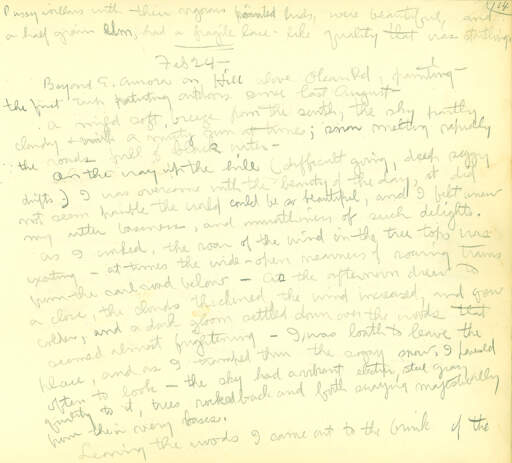 Pussy willows with their gorgeous pointed buds, were beautiful, and
a half grown elm, had a fragile lace-like quality that was startling
Feb 24 —
Beyond E. Aurora on Hill above Olean Rd, painting —
the first painting outdoors since last August —
a mild soft breeze from the south, the sky partly
cloudy with a misty sun at times; snow melting rapidly
the roads full of black water —
On the way up the hill (difficult going, deep soggy
drifts) I was overcome with the beauty of the day, it did
not seem possible the world could be so beautiful, and I felt anew
my utter baseness, and unworthiness of such delights.
As I worked, the roar of the wind in the tree tops was
exciting — at times the wide-open nearness of roaring trains
from the railroad below — As the afternoon drew to
a close, the clouds thickened, the wind increased, and grew
colder, and a dark gloom settled down over the woods that
seemed almost frightening — I was loath to leave the
place, and as I tramped thru the soggy snow, I paused
often to look — the sky had a vibrant electric steel gray
quality to it, trees rocked back and forth swaying majestically
from their very bases.
Leaving the woods I came out to the brink of the